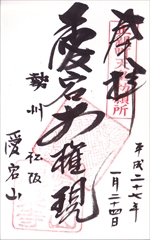 奉拝
愛宕大権現
勢州
松阪
愛宕山
平成二十七年
一月二十四日